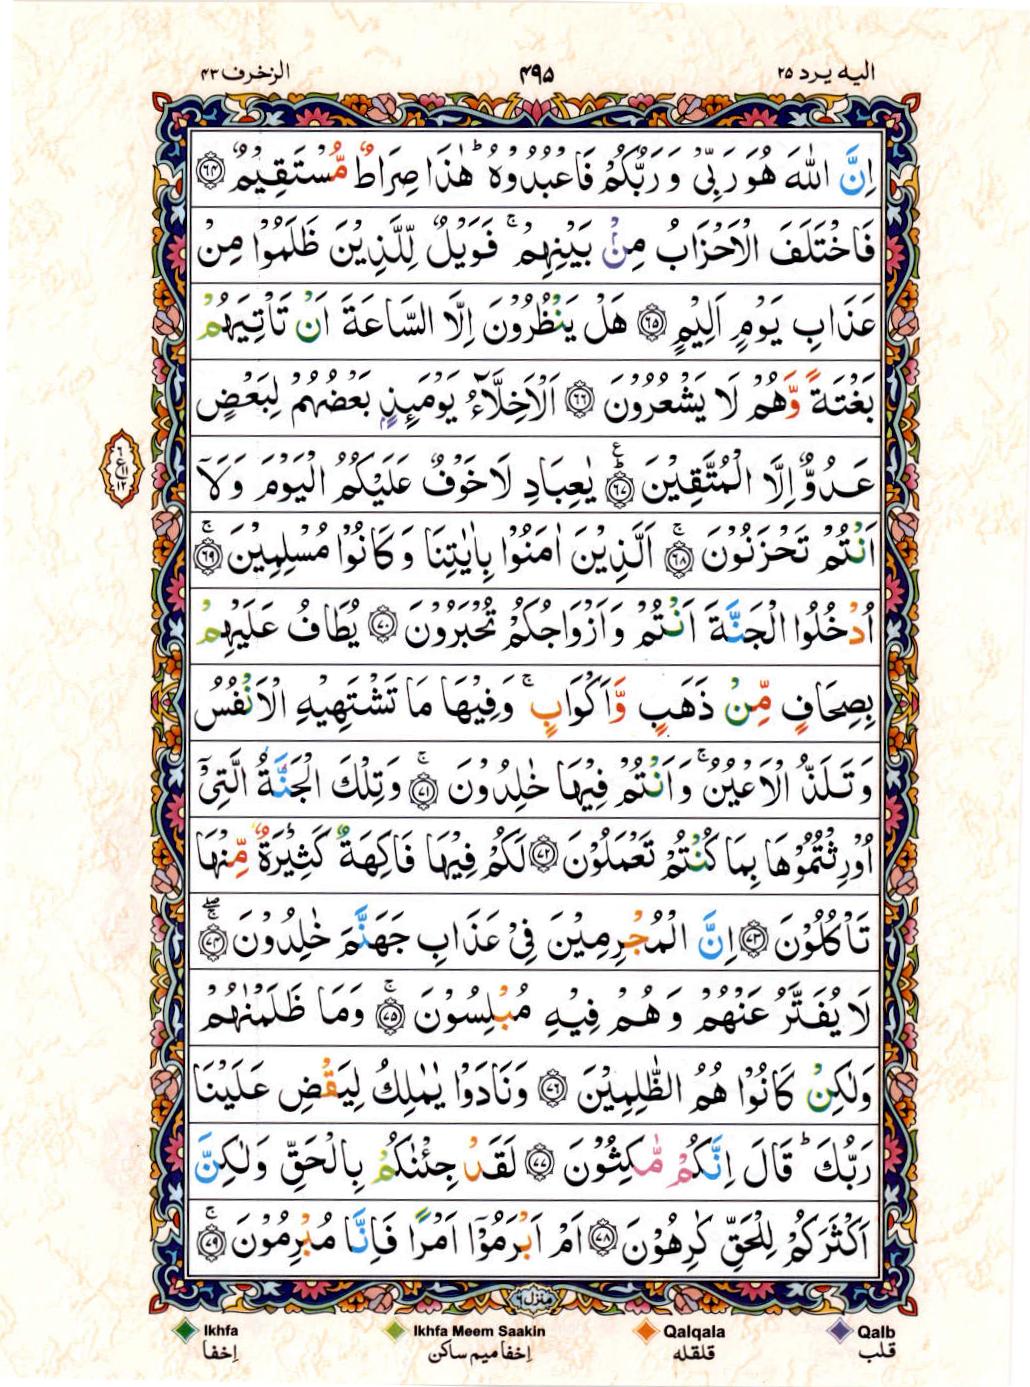 الیه یرد ۲۵ ۴۹۵ الزخرف ۴۳
اِنَّ اللّٰهَ هُوَ رَبِّیْ وَ رَبُّكُمْ فَاعْبُدُوْهُ ؕ هٰذَا صِرَاطٌ مُّسْتَقِیْمٌ ﴿۶۴﴾
فَاخْتَلَفَ الْاَحْزَابُ مِنْۢ بَیْنِهِمْ ۚ فَوَیْلٌ لِّلَّذِیْنَ ظَلَمُوْا مِنْ
عَذَابِ یَوْمٍ اَلِیْمٍ ﴿۶۵﴾ هَلْ یَنْظُرُوْنَ اِلَّا السَّاعَةَ اَنْ تَاْتِیَهُمْ
بَغْتَةً وَّهُمْ لَا یَشْعُرُوْنَ ﴿۶۶﴾ اَلْاَخِلَّآءُ یَوْمَىِٕذٍۭ بَعْضُهُمْ لِبَعْضٍ
عَدُوٌّ اِلَّا الْمُتَّقِیْنَ ؕ﴿۶۷﴾ یٰعِبَادِ لَا خَوْفٌ عَلَیْكُمُ الْیَوْمَ وَ لَاۤ
اَنْتُمْ تَحْزَنُوْنَ ۚ﴿۶۸﴾ اَلَّذِیْنَ اٰمَنُوْا بِاٰیٰتِنَا وَ كَانُوْا مُسْلِمِیْنَ ۚ﴿۶۹﴾
اُدْخُلُوا الْجَنَّةَ اَنْتُمْ وَ اَزْوَاجُكُمْ تُحْبَرُوْنَ ﴿۷۰﴾ یُطَافُ عَلَیْهِمْ
بِصِحَافٍ مِّنْ ذَهَبٍ وَّ اَكْوَابٍ ۚ وَ فِیْهَا مَا تَشْتَهِیْهِ الْاَنْفُسُ
وَ تَلَذُّ الْاَعْیُنُ ۚ وَ اَنْتُمْ فِیْهَا خٰلِدُوْنَ ۚ﴿۷۱﴾ وَ تِلْكَ الْجَنَّةُ الَّتِیْۤ
اُوْرِثْتُمُوْهَا بِمَا كُنْتُمْ تَعْمَلُوْنَ ﴿۷۲﴾ لَكُمْ فِیْهَا فَاكِهَةٌ كَثِیْرَةٌ مِّنْهَا
تَاْكُلُوْنَ ﴿۷۳﴾ اِنَّ الْمُجْرِمِیْنَ فِیْ عَذَابِ جَهَنَّمَ خٰلِدُوْنَ ۚۖ﴿۷۴﴾
لَا یُفَتَّرُ عَنْهُمْ وَ هُمْ فِیْهِ مُبْلِسُوْنَ ۚ﴿۷۵﴾ وَ مَا ظَلَمْنٰهُمْ
وَ لٰكِنْ كَانُوْا هُمُ الظّٰلِمِیْنَ ﴿۷۶﴾ وَ نَادَوْا یٰمٰلِكُ لِیَقْضِ عَلَیْنَا
رَبُّكَ ؕ قَالَ اِنَّكُمْ مّٰكِثُوْنَ ﴿۷۷﴾ لَقَدْ جِئْنٰكُمْ بِالْحَقِّ وَ لٰكِنَّ
اَكْثَرَكُمْ لِلْحَقِّ كٰرِهُوْنَ ﴿۷۸﴾ اَمْ اَبْرَمُوْۤا اَمْرًا فَاِنَّا مُبْرِمُوْنَ ۚ﴿۷۹﴾
ع
۶
۱۱
۱۲
منزل ۶
Ikhfa Ikhfa Meem Saakin Qalqala Qalb
اِخفا اِخفا میم ساکن قلقله قلب